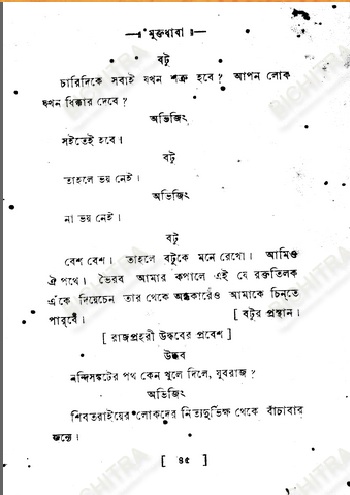 মুক্তধারা
বটু
চারিদিকে সবাই যখন শত্রু হবে? আপন লোক
যখন ধিক্কার দেবে?
অভিজিৎ
সইতেই হবে।
বটু
তাহলে ভয় নেই।
অভিজিৎ
না ভয় নেই।
বটু
বেশ বেশ। তাহলে বটুকে মনে রেখো। আমিও
ঐ পথে। ভৈরব আমার কপালে এই যে রক্ততিলক
এঁকে দিয়েচেন তার থেকে অন্ধকারেও আমাকে চিন্‌তে
পার্‌বে। [ বটুর প্রস্থান।
[ রাজপ্রহরী উদ্ধবের প্রবেশ ]
উদ্ধব
নন্দিসঙ্কটের পথ কেন খুলে দিলে, যুবরাজ?
অভিজিৎ
শিবতরাইয়ের লোকদের নিত্যদুর্ভিক্ষ থেকে বাঁচাবার
জন্যে।
[ ৪৫ ]
BICHITRA